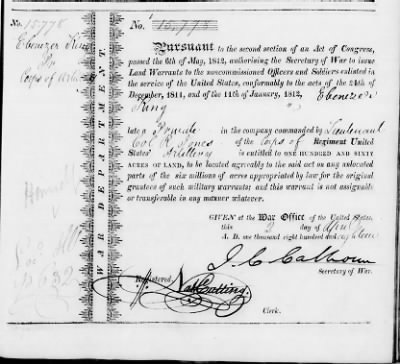 No. 15.778
Ebenezer King
Corps of Artil
WAR DEPARTMENT.
No. 15,778
Pursuant to the second section of an Act of Congress,
passed the 6th of May, 1812, authorising the Secretary of War to issue
Land Warrants to the noncommissioned Officers and Soldiers enlisted in
the service of the United States, conformably to the acts of the 24th of
December, 1811, and of the 11th of January, 1812, Ebenezer
King
late a Private in the company commanded by Lieutenant
Col R. Jones of the Corps of Regiment United
States' Artillery is entitled to ONE HUNDRED AND SIXTY
ACRES OF LAND, to be located agreeably to the said act on any unlocated
parts of the six millions of acres appropriated by law for the original
grantees of such military warrants; and this warrant is not assignable
or transferable in any manner whatever.
GIVEN at the War Office of the United States,
this 2 day of April
A. D. one thousand eight hundred and eighteen
J. C. Calhoun
Secretary of War.
Registered
Clerk.